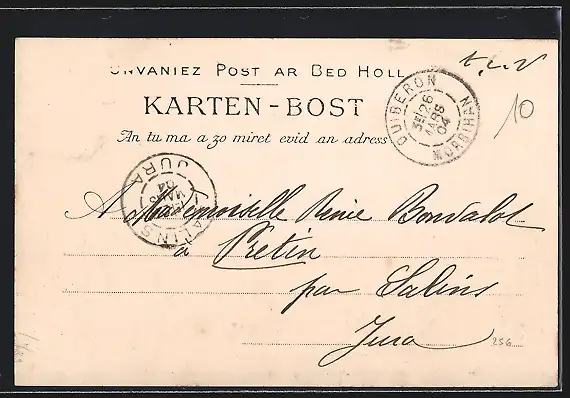 UNVANIEZ POST AR BED HOLL
KARTEN-BOST
An tu ma a zo miret evid an adress
QUIBERON
3E /26
MARS
04
MORBIHAN
10
SALINS
JURA
04
A Mademoiselle Renée Bonvalot
à Pretin
par Salins
Jura
256